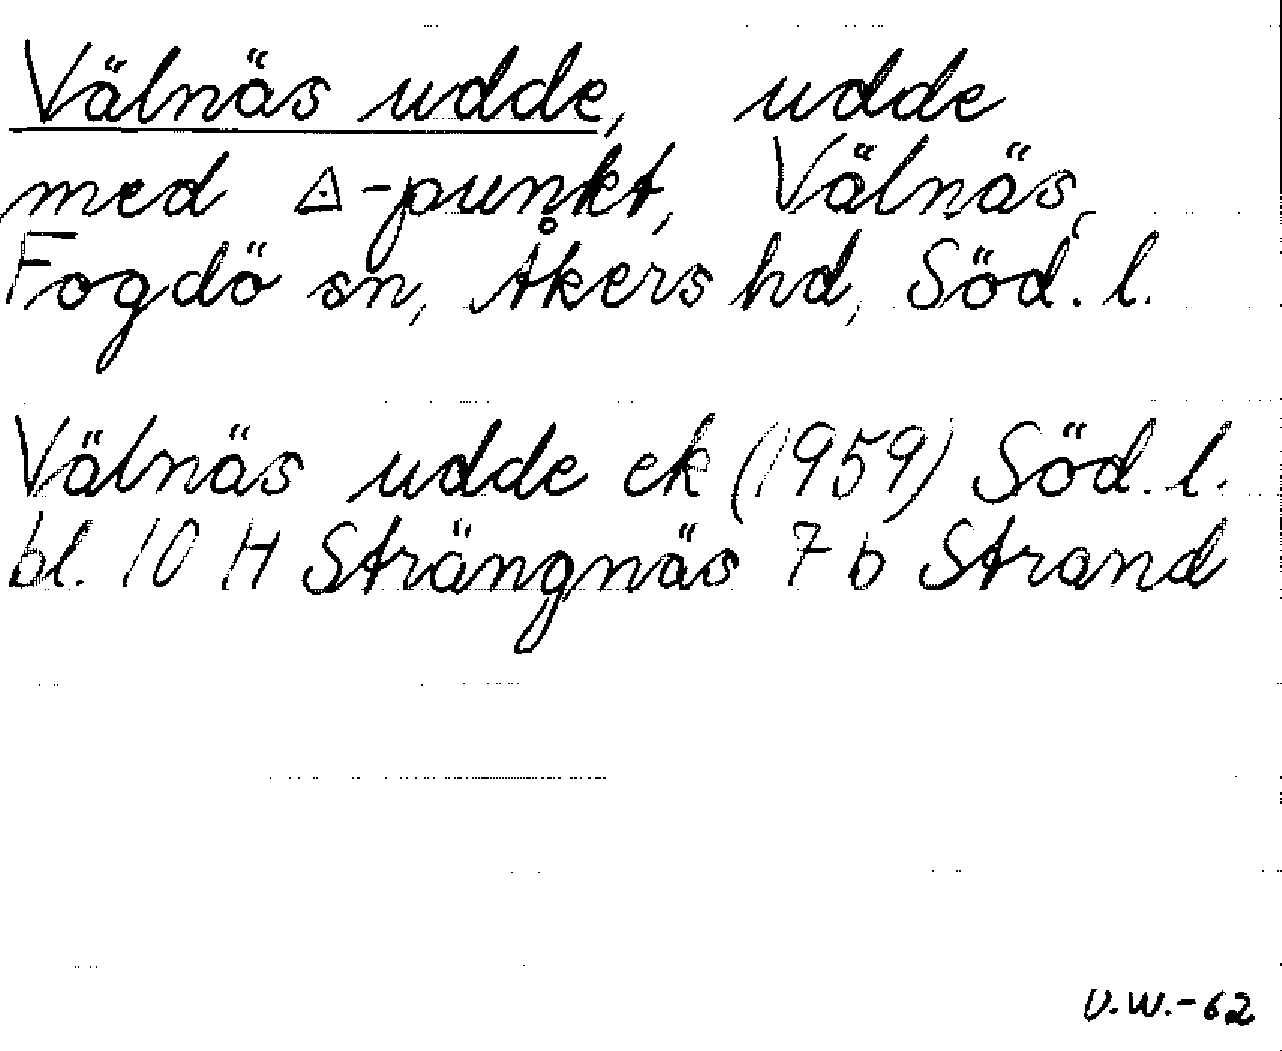 Välnäs udde, udde
med △-punkt, Välnäs,
Fogdö sn, Åkers hd, Söd. l.
Välnäs udde ek (1959) Söd. l.
bl. 10 H Strängnäs 7 b Strand
V.W.-62